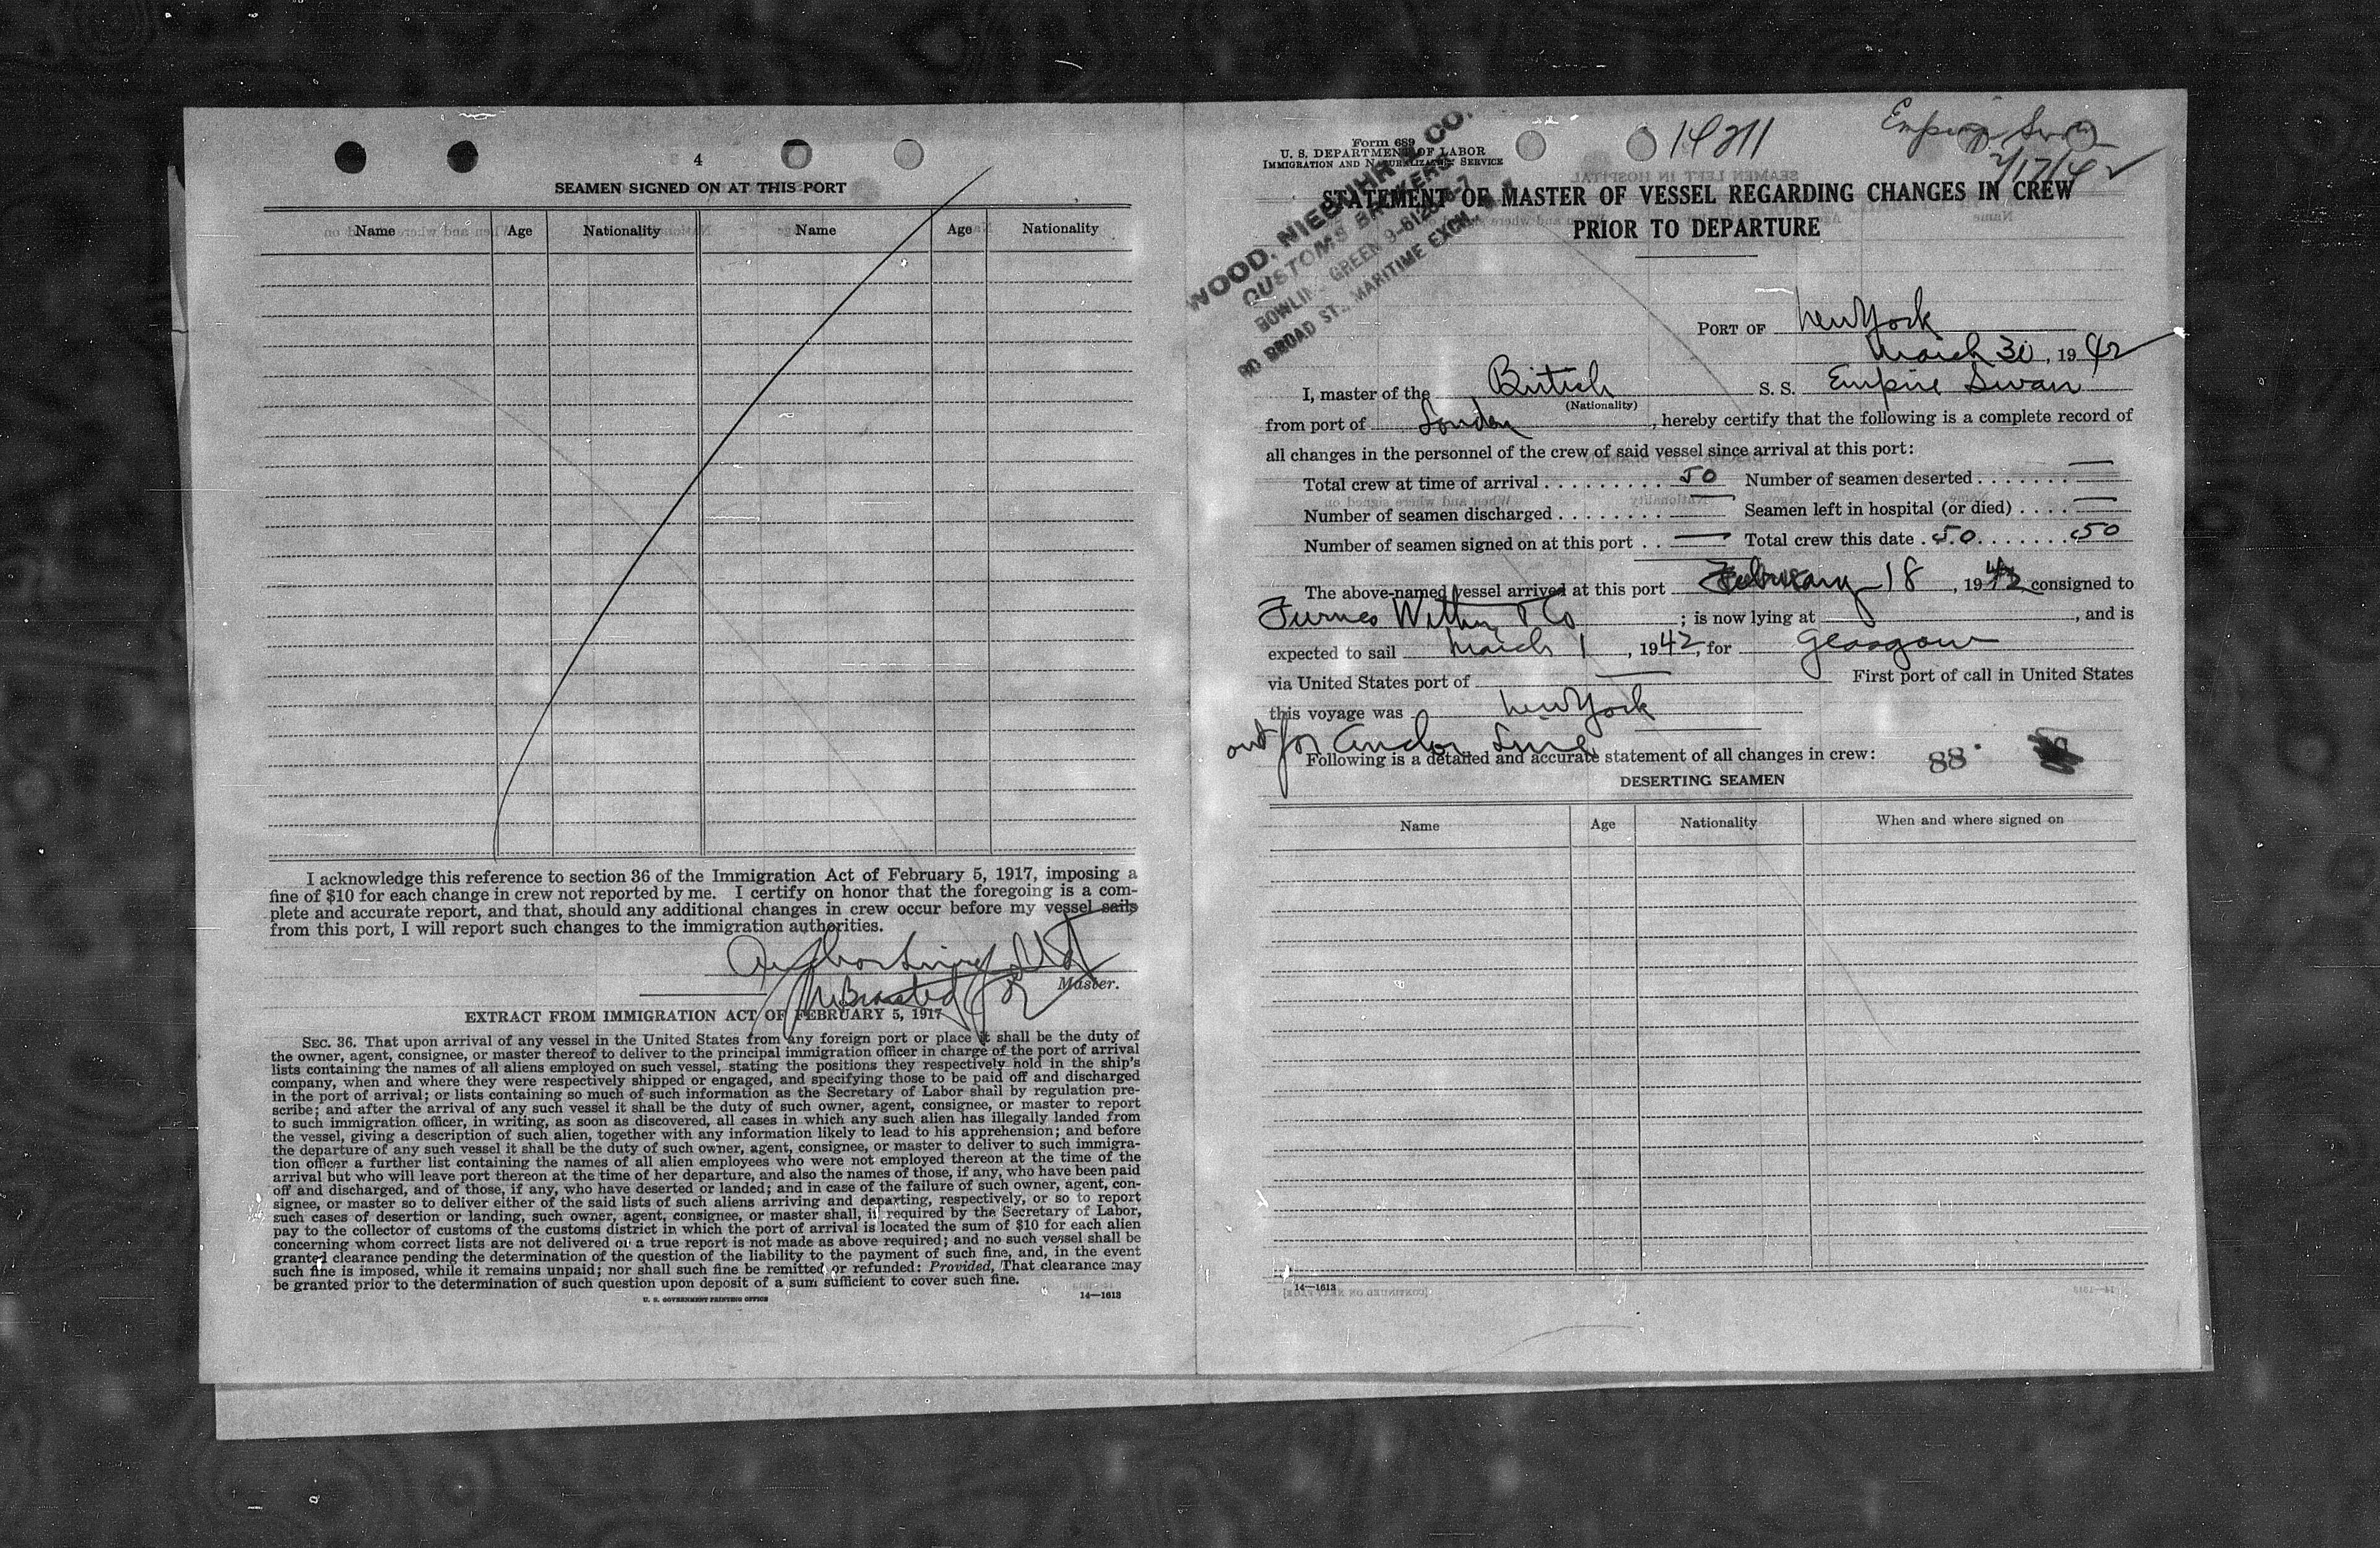 4
SEAMEN SIGNED ON AT THIS PORT
Name Age Nationality Name Age Nationality
I acknowledge this reference to section 36 of the Immigration Act of February 5, 1917, imposing a
fine of $10 for each change in crew not reported by me. I certify on honor that the foregoing is a com-
plete and accurate report, and that, should any additional changes in crew occur before my vessel sails
from this port, I will report such changes to the immigration authorities.
Master.
EXTRACT FROM IMMIGRATION ACT OF FEBRUARY 5, 1917
SEC. 36. That upon arrival of any vessel in the United States from any foreign port or place it shall be the duty of
the owner, agent, consignee, or master thereof to deliver to the principal immigration officer in charge of the port of arrival
lists containing the names of all aliens employed on such vessel, stating the positions they respectively hold in the ship's
company, when and where they were respectively shipped or engaged, and specifying those to be paid off and discharged
in the port of arrival; or lists containing so much of such information as the Secretary of Labor shall by regulation pre-
scribe; and after the arrival of any such vessel it shall be the duty of such owner, agent, consignee, or master to report
to such immigration officer, in writing, as soon as discovered, all cases in which any such alien has illegally landed from
the vessel, giving a description of such alien, together with any information likely to lead to his apprehension; and before
the departure of any such vessel it shall be the duty of such owner, agent, consignee, or master to deliver to such immigra-
tion officer a further list containing the names of all alien employees who were not employed thereon at the time of the
arrival but who will leave port thereon at the time of her departure, and also the names of those, if any, who have been paid
off and discharged, and of those, if any, who have deserted or landed; and in case of the failure of such owner, agent, con-
signee, or master so to deliver either of the said lists of such aliens arriving and departing, respectively, or so to report
such cases of desertion or landing, such owner, agent, consignee, or master shall, if required by the Secretary of Labor,
pay to the collector of customs of the customs district in which the port of arrival is located the sum of $10 for each alien
concerning whom correct lists are not delivered or a true report is not made as above required; and no such vessel shall be
granted clearance pending the determination of the question of the liability to the payment of such fine, and, in the event
such fine is imposed, while it remains unpaid; nor shall such fine be remitted or refunded: Provided, That clearance may
be granted prior to the determination of such question upon deposit of a sum sufficient to cover such fine.
U. S. GOVERNMENT PRINTING OFFICE
14—1613
Form 689
U. S. DEPARTMENT OF LABOR
IMMIGRATION AND NATURALIZATION SERVICE
14211
Empire Swan
2/17/42
WOOD, NIEBUHR & CO.
CUSTOMS BROKERS
BOWLING GREEN
80 BROAD ST., MARITIME EXCH.
STATEMENT OF MASTER OF VESSEL REGARDING CHANGES IN CREW
PRIOR TO DEPARTURE
PORT OF New York
March 30, 1942
I, master of the British S. S. Empire Swan
(Nationality)
from port of London, hereby certify that the following is a complete record of
all changes in the personnel of the crew of said vessel since arrival at this port:
Total crew at time of arrival 50 Number of seamen deserted —
Number of seamen discharged — Seamen left in hospital (or died) —
Number of seamen signed on at this port — Total crew this date 50 50
The above-named vessel arrived at this port February 18, 1942 consigned to
Furness Withy & Co; is now lying at , and is
expected to sail March 1, 1942, for Glasgow
via United States port of — First port of call in United States
this voyage was New York
out for Line
Following is a detailed and accurate statement of all changes in crew: 88
DESERTING SEAMEN
Name Age Nationality When and where signed on
14—1613